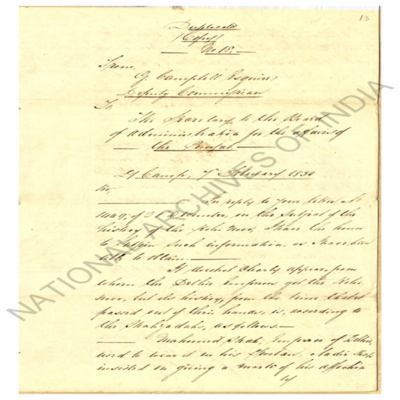 13
Duplicate
Copy
No 15.
From
G. Campbell Esquire
Deputy Commissioner
To
The Secretary to the Board
of Administration for the affairs of
the Punjab
Camp, 7 February 1850
Sir,
In reply to your letter No
of December, on the subject of the
history of the Koh i Noor, I have the honor
to such information, as I have been
able to obtain.
It clearly appears from
whom the Delhi Emperors got the Koh i
Noor, but its history, from the time that it
passed out of their hands, is, according to
the Shahzadahs, as follows.
Mahomed Shah, Emperor of Delhi
used to wear it in his Turban, Nadir Shah
insisted on giving a mark of his affection
by
NATIONAL ARCHIVES OF INDIA